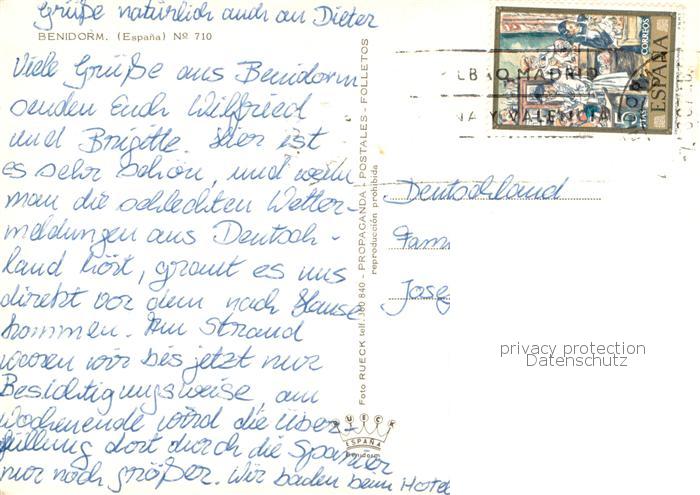 Grüße natürlich auch an Dieter
BENIDORM. (España) Nº 710
Viele Grüße aus Benidorm
senden Euch Wilfried
und Brigitte. Hier ist
es sehr schön, und wenn
man die schlechten Wetter-
meldungen aus Deutsch-
land hört, graut es uns
direkt vor dem nach Hause
kommen. Am Strand
waren wir bis jetzt nur
Besichtigungsweise, am
Wochenende wird die Über-
füllung dort durch die Spanier
nur noch größer. Wir baden beim Hotel
Foto RUECK telf. 360 840 - PROPAGANDA - POSTALES - FOLLETOS
reproducción prohibida
RUECK
ESPAÑA
Benidorm
CORREOS
ESPAÑA
PTAS
BAO, MADRID
NA Y VALENCIA
Deutschland
Fam
Jose
privacy protection
Datenschutz